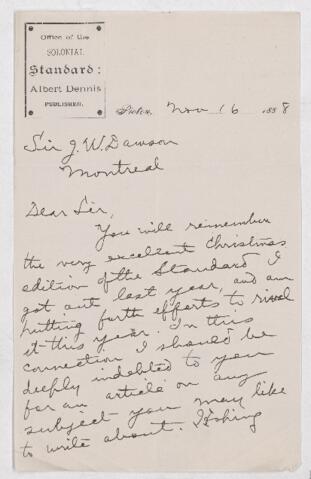 Office of the
COLONIAL
Standard:
Albert Dennis
PUBLISHER.
Pictou, Nov 16 1888
Sir J. W. Dawson
Montreal
Dear Sir,
You will remember
the very excellent Christmas
edition of the Standard I
got out last year, and am
putting forth efforts to rival
it this year. In this
connection I should be
deeply indebted to you
for an article on any
subject you may like
to write about.